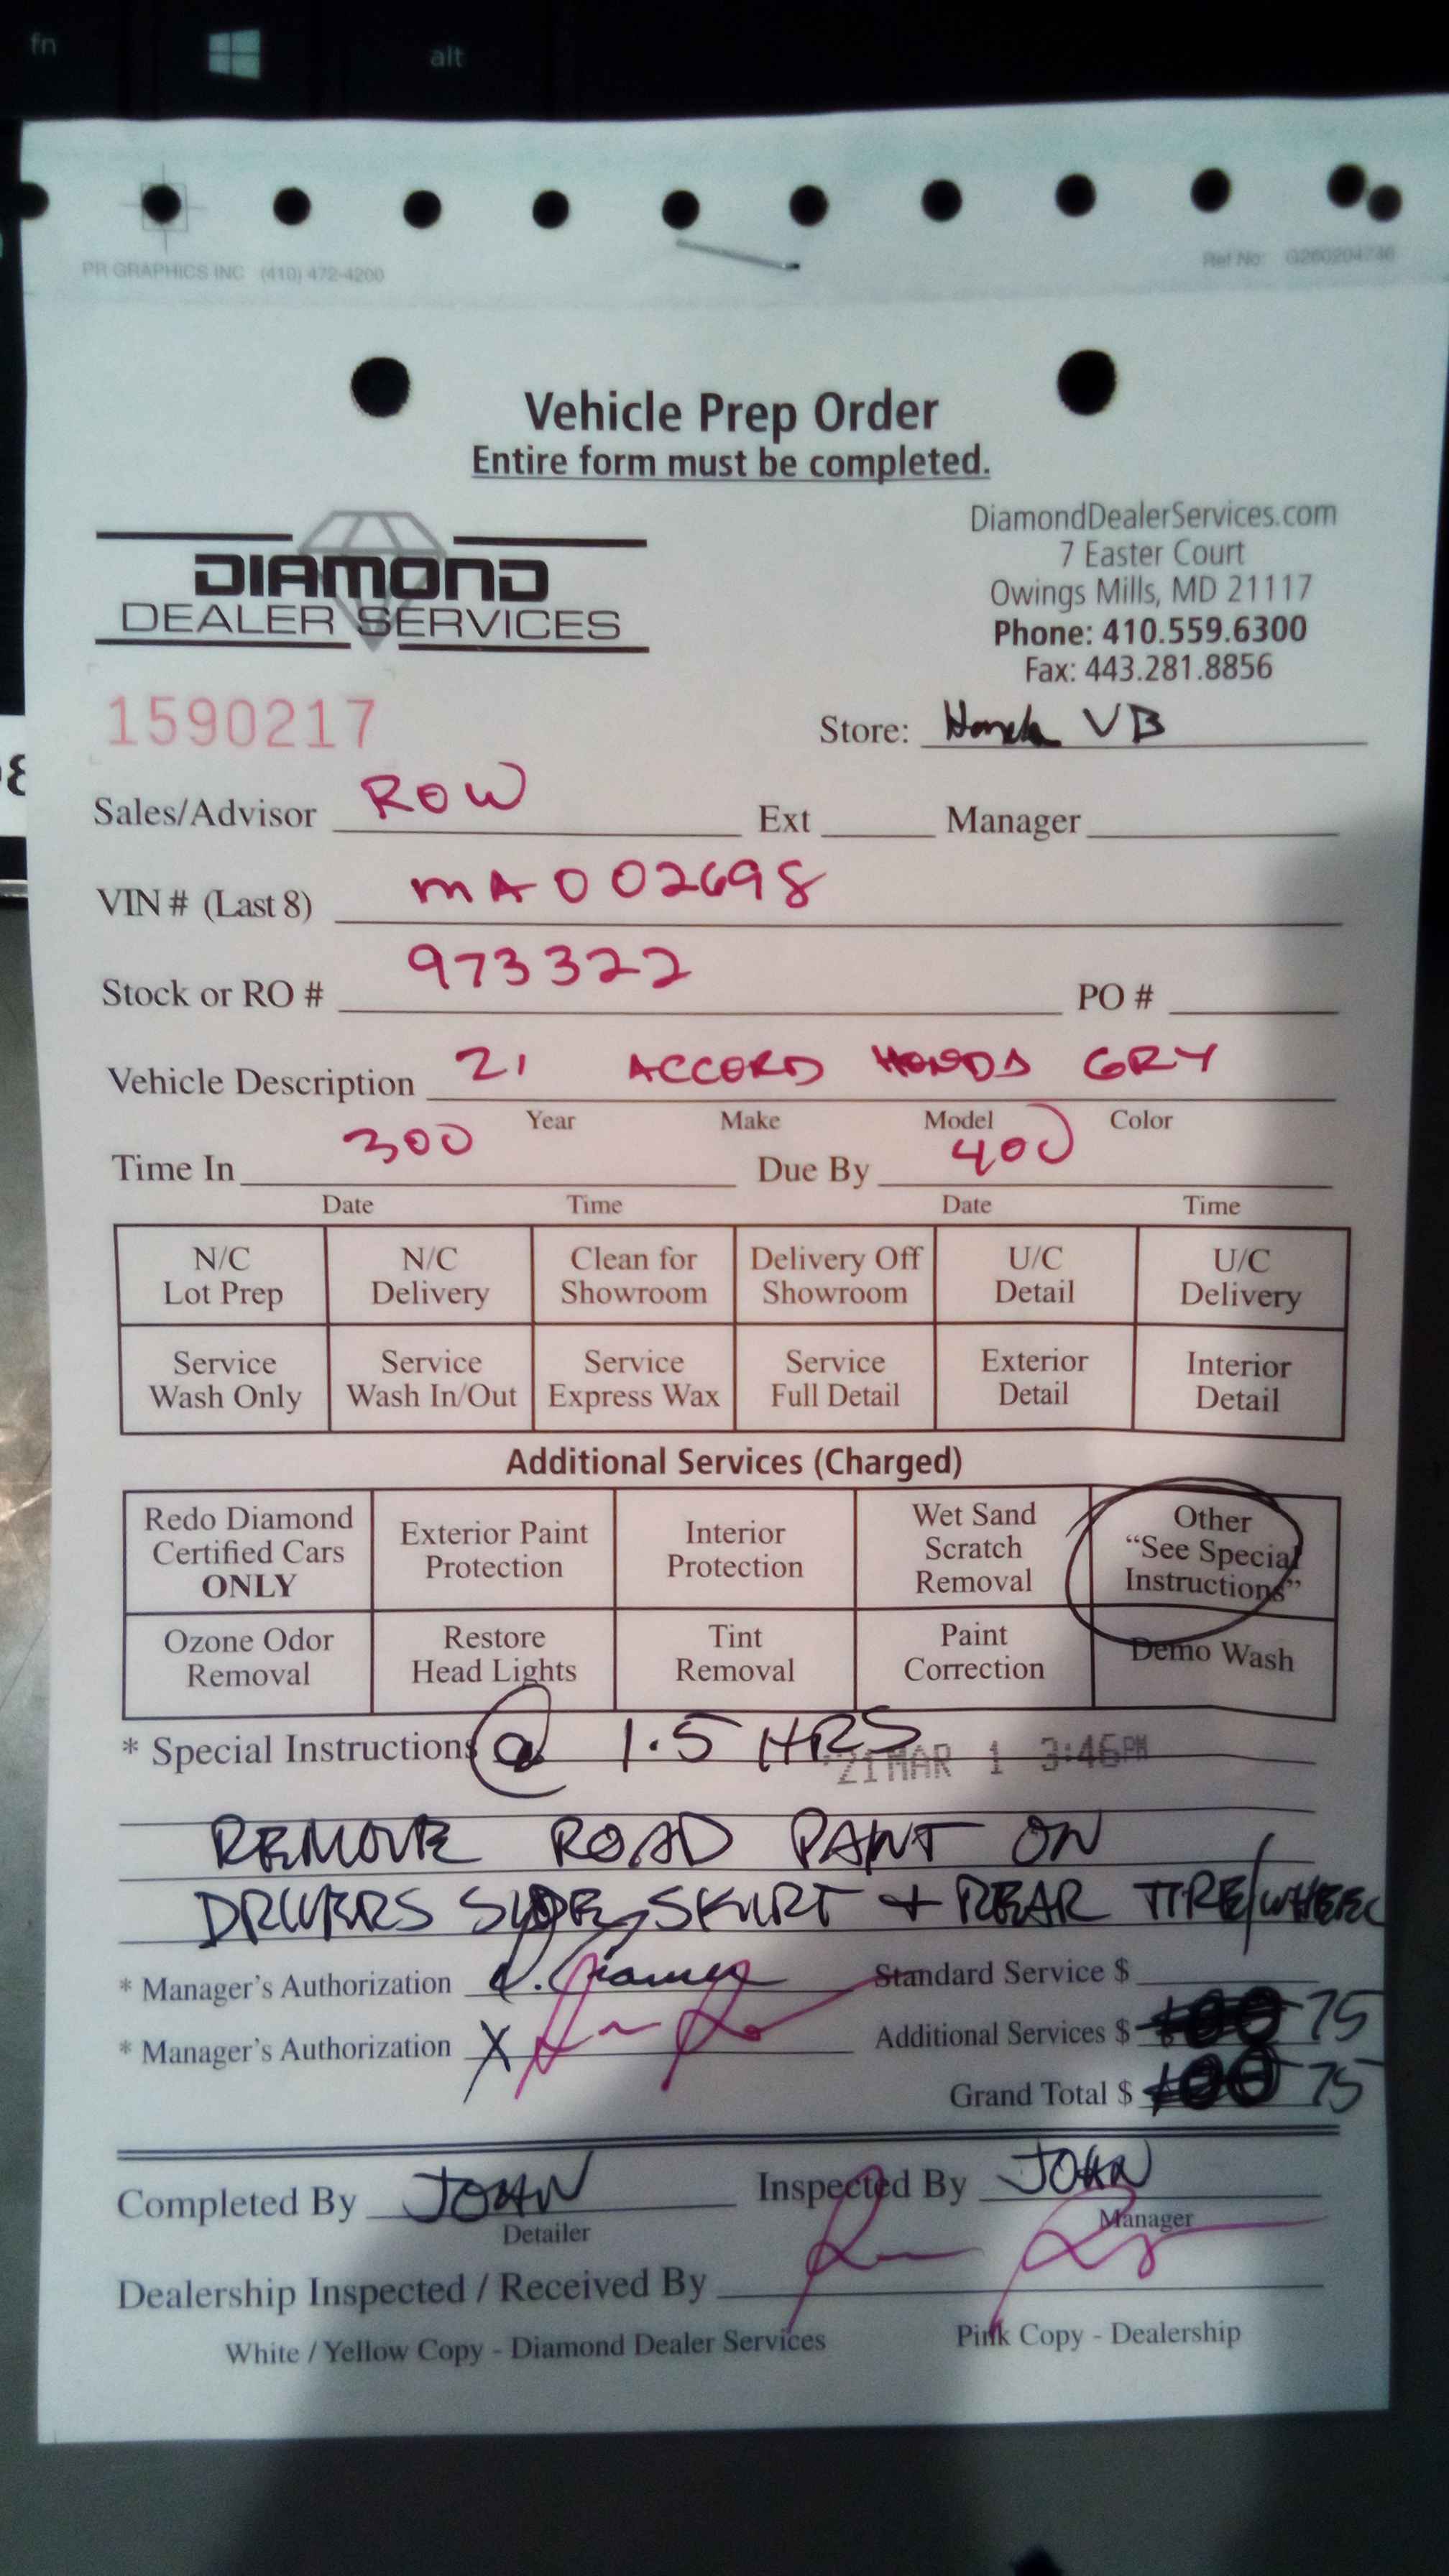 fn alt
PR GRAPHICS INC (410) 472-4200 Ref No: G260204746
Vehicle Prep Order
Entire form must be completed.
DIAMOND
DEALER SERVICES
DiamondDealerServices.com
7 Easter Court
Owings Mills, MD 21117
Phone: 410.559.6300
Fax: 443.281.8856
1590217
Store: Honda VB
Sales/Advisor ROW Ext Manager
VIN # (Last 8) MA002698
Stock or RO # 973322 PO #
Vehicle Description 21 ACCORD HONDA GRY
Year Make Model Color
Time In 300 Due By 400
Date Time Date Time
N/C Lot Prep N/C Delivery Clean for Showroom Delivery Off Showroom U/C Detail U/C Delivery
Service Wash Only Service Wash In/Out Service Express Wax Service Full Detail Exterior Detail Interior Detail
Additional Services (Charged)
Redo Diamond Certified Cars ONLY Exterior Paint Protection Interior Protection Wet Sand Scratch Removal Other "See Special Instructions"
Ozone Odor Removal Restore Head Lights Tint Removal Paint Correction Demo Wash
* Special Instructions @ 1.5 HRS
'21 MAR 1 3:46PM
REMOVE ROAD PAINT ON
DRIVERS SIDE SKIRT + REAR TIRE/WHEEL
* Manager's Authorization Standard Service $
* Manager's Authorization X Additional Services $ 75
Grand Total $ 75
Completed By JOHN Inspected By JOHN
Detailer Manager
Dealership Inspected / Received By
White / Yellow Copy - Diamond Dealer Services Pink Copy - Dealership